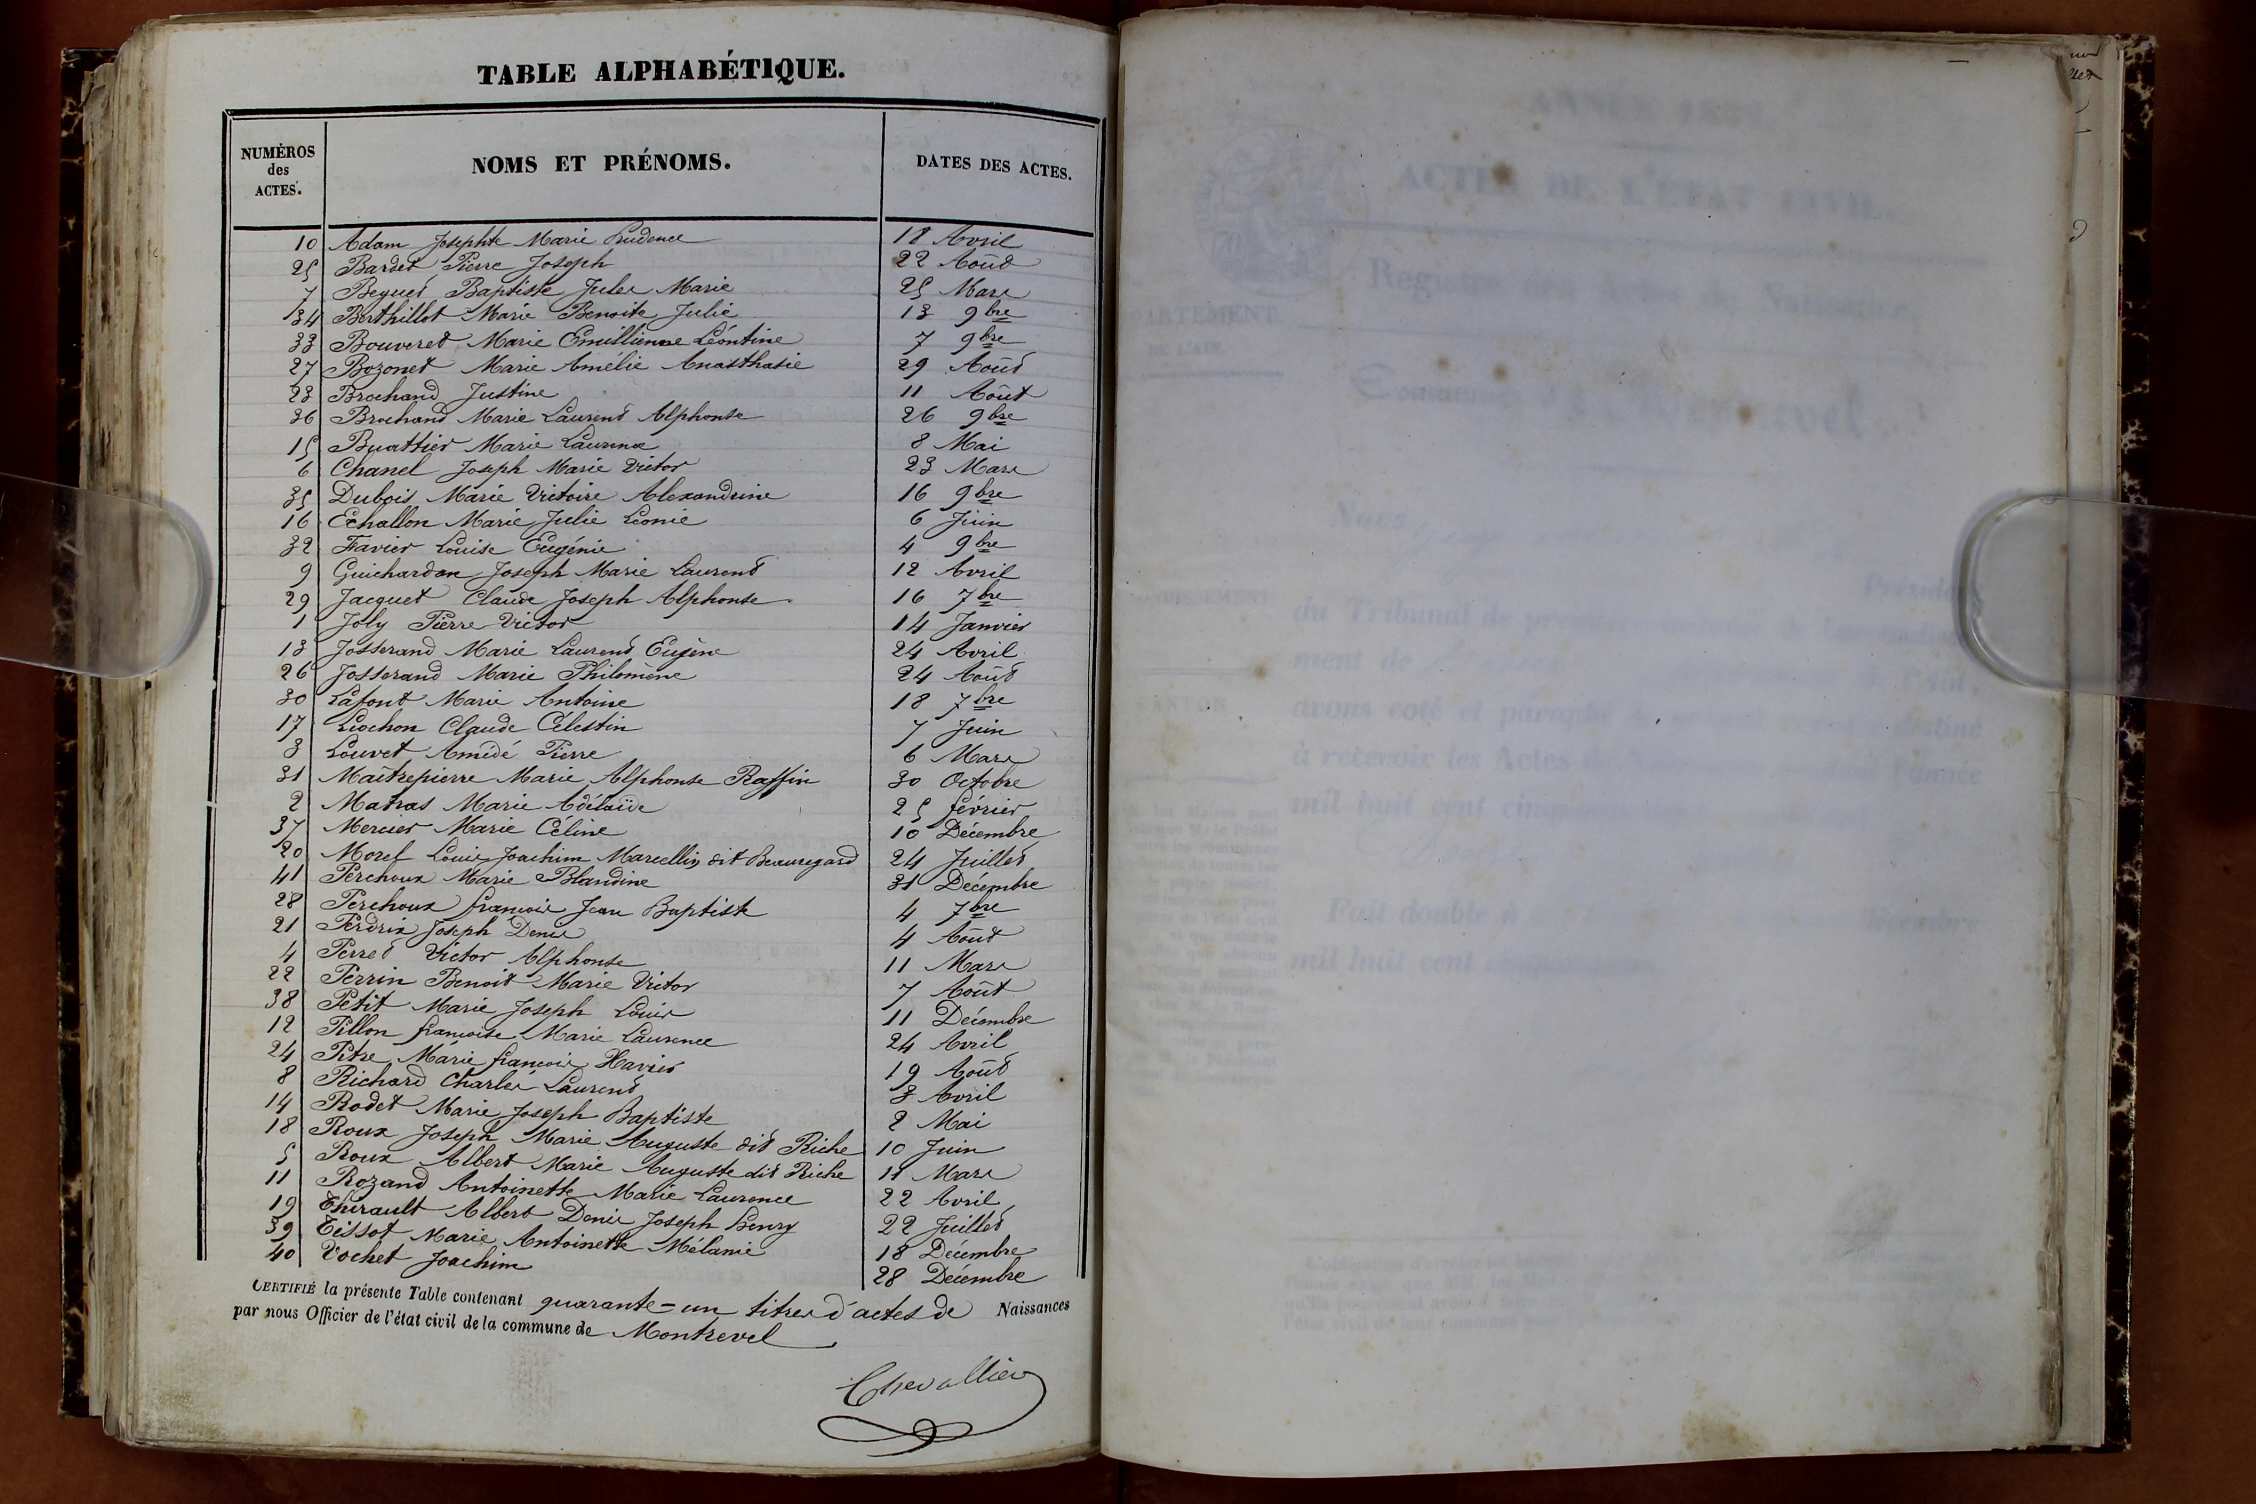 TABLE ALPHABÉTIQUE.
NUMÉROS des ACTES. NOMS ET PRÉNOMS. DATES DES ACTES.
10 Adam Josephte Marie Prudence 18 Avril
25 Bardet Pierre Joseph 22 Août
7 Beguet Baptiste Jules Marie 25 Mars
34 Berthillot Marie Benoite Julie 13 9bre
33 Bouveret Marie Emillienne Léontine 7 9bre
27 Bozonet Marie Amélie Anasthasie 29 Août
23 Brochand Justine 11 Août
36 Brochand Marie Laurent Alphonse 26 9bre
15 Buattier Marie Laurence 8 Mai
6 Chanel Joseph Marie Victor 23 Mars
35 Dubois Marie Victoire Alexandrine 16 9bre
16 Echallon Marie Julie Léonie 6 Juin
32 Favier Louise Eugénie 4 9bre
9 Guichardon Joseph Marie Laurent 12 Avril
29 Jacquet Claude Joseph Alphonse 16 7bre
1 Joly Pierre Victor 14 Janvier
13 Josserand Marie Laurent Eugène 24 Avril
26 Josserand Marie Philomène 24 Août
30 Lafont Marie Antoine 18 7bre
17 Liochon Claude Célestin 7 Juin
3 Louvet Amédé Pierre 6 Mars
31 Maîtrepierre Marie Alphonse Raffin 30 Octobre
2 Matras Marie Adélaïde 25 février
37 Mercier Marie Céline 10 Décembre
20 Morel Louis Joachim Marcellin dit Beauregard 24 Juillet
41 Perchoux Marie Blandine 31 Décembre
28 Perchoux françois Jean Baptiste 4 7bre
21 Perdrix Joseph Denis 4 Août
4 Perret Victor Alphonse 11 Mars
22 Perrin Benoit Marie Victor 7 Août
38 Petit Marie Joseph Louis 11 Décembre
12 Pillon françoise Marie Laurence 24 Avril
24 Pitre Marie françois Xavier 19 Août
8 Richard Charles Laurent 8 Avril
14 Rodet Marie Joseph Baptiste 2 Mai
18 Roux Joseph Marie Auguste dit Riche 10 Juin
5 Roux Albert Marie Auguste dit Riche 11 Mars
11 Rozand Antoinette Marie Laurence 22 Avril
19 Thirault Albert Denis Joseph Henry 22 Juillet
39 Tissot Marie Antoinette Mélanie 18 Décembre
40 Vochet Joachim 28 Décembre
CERTIFIÉ la présente Table contenant quarante-un titres d'actes de Naissances
par nous Officier de l'état civil de la commune de Montrevel
Chevallier